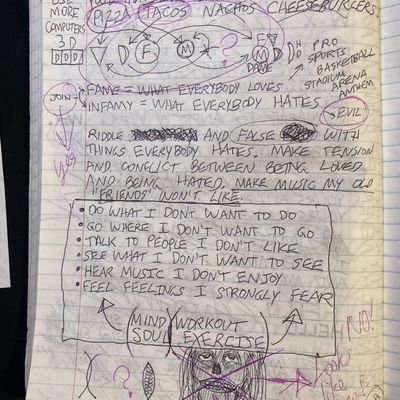 USE
MORE
COMPUTERS
3 D
DDD
PIZZA TACOS NACHOS CHEESEBURGERS:
V D F M ? F V
M D
DAME
D H D
PRO
SPORTS
BASKETBALL
STADIUM ARENA
ANTHEM
JOIN
FAME = WHAT EVERYBODY LOVES
INFAMY = WHAT EVERYBODY HATES
EVIL
yes
RIDDLE AND FALSE WITH
THINGS EVERYBODY HATES. MAKE TENSION
AND CONFLICT BETWEEN BEING LOVED
AND BEING HATED. MAKE MUSIC MY OLD
"FRIENDS" WON'T LIKE.
• DO WHAT I DONT WANT TO DO
• GO WHERE I DON'T WANT TO GO
• TALK TO PEOPLE I DON'T LIKE
• SEE WHAT I DON'T WANT TO SEE
• HEAR MUSIC I DON'T ENJOY
• FEEL FEELINGS I STRONGLY FEAR
(MIND SOUL) (WORKOUT EXERCISE)
?
NO!
Looks
like